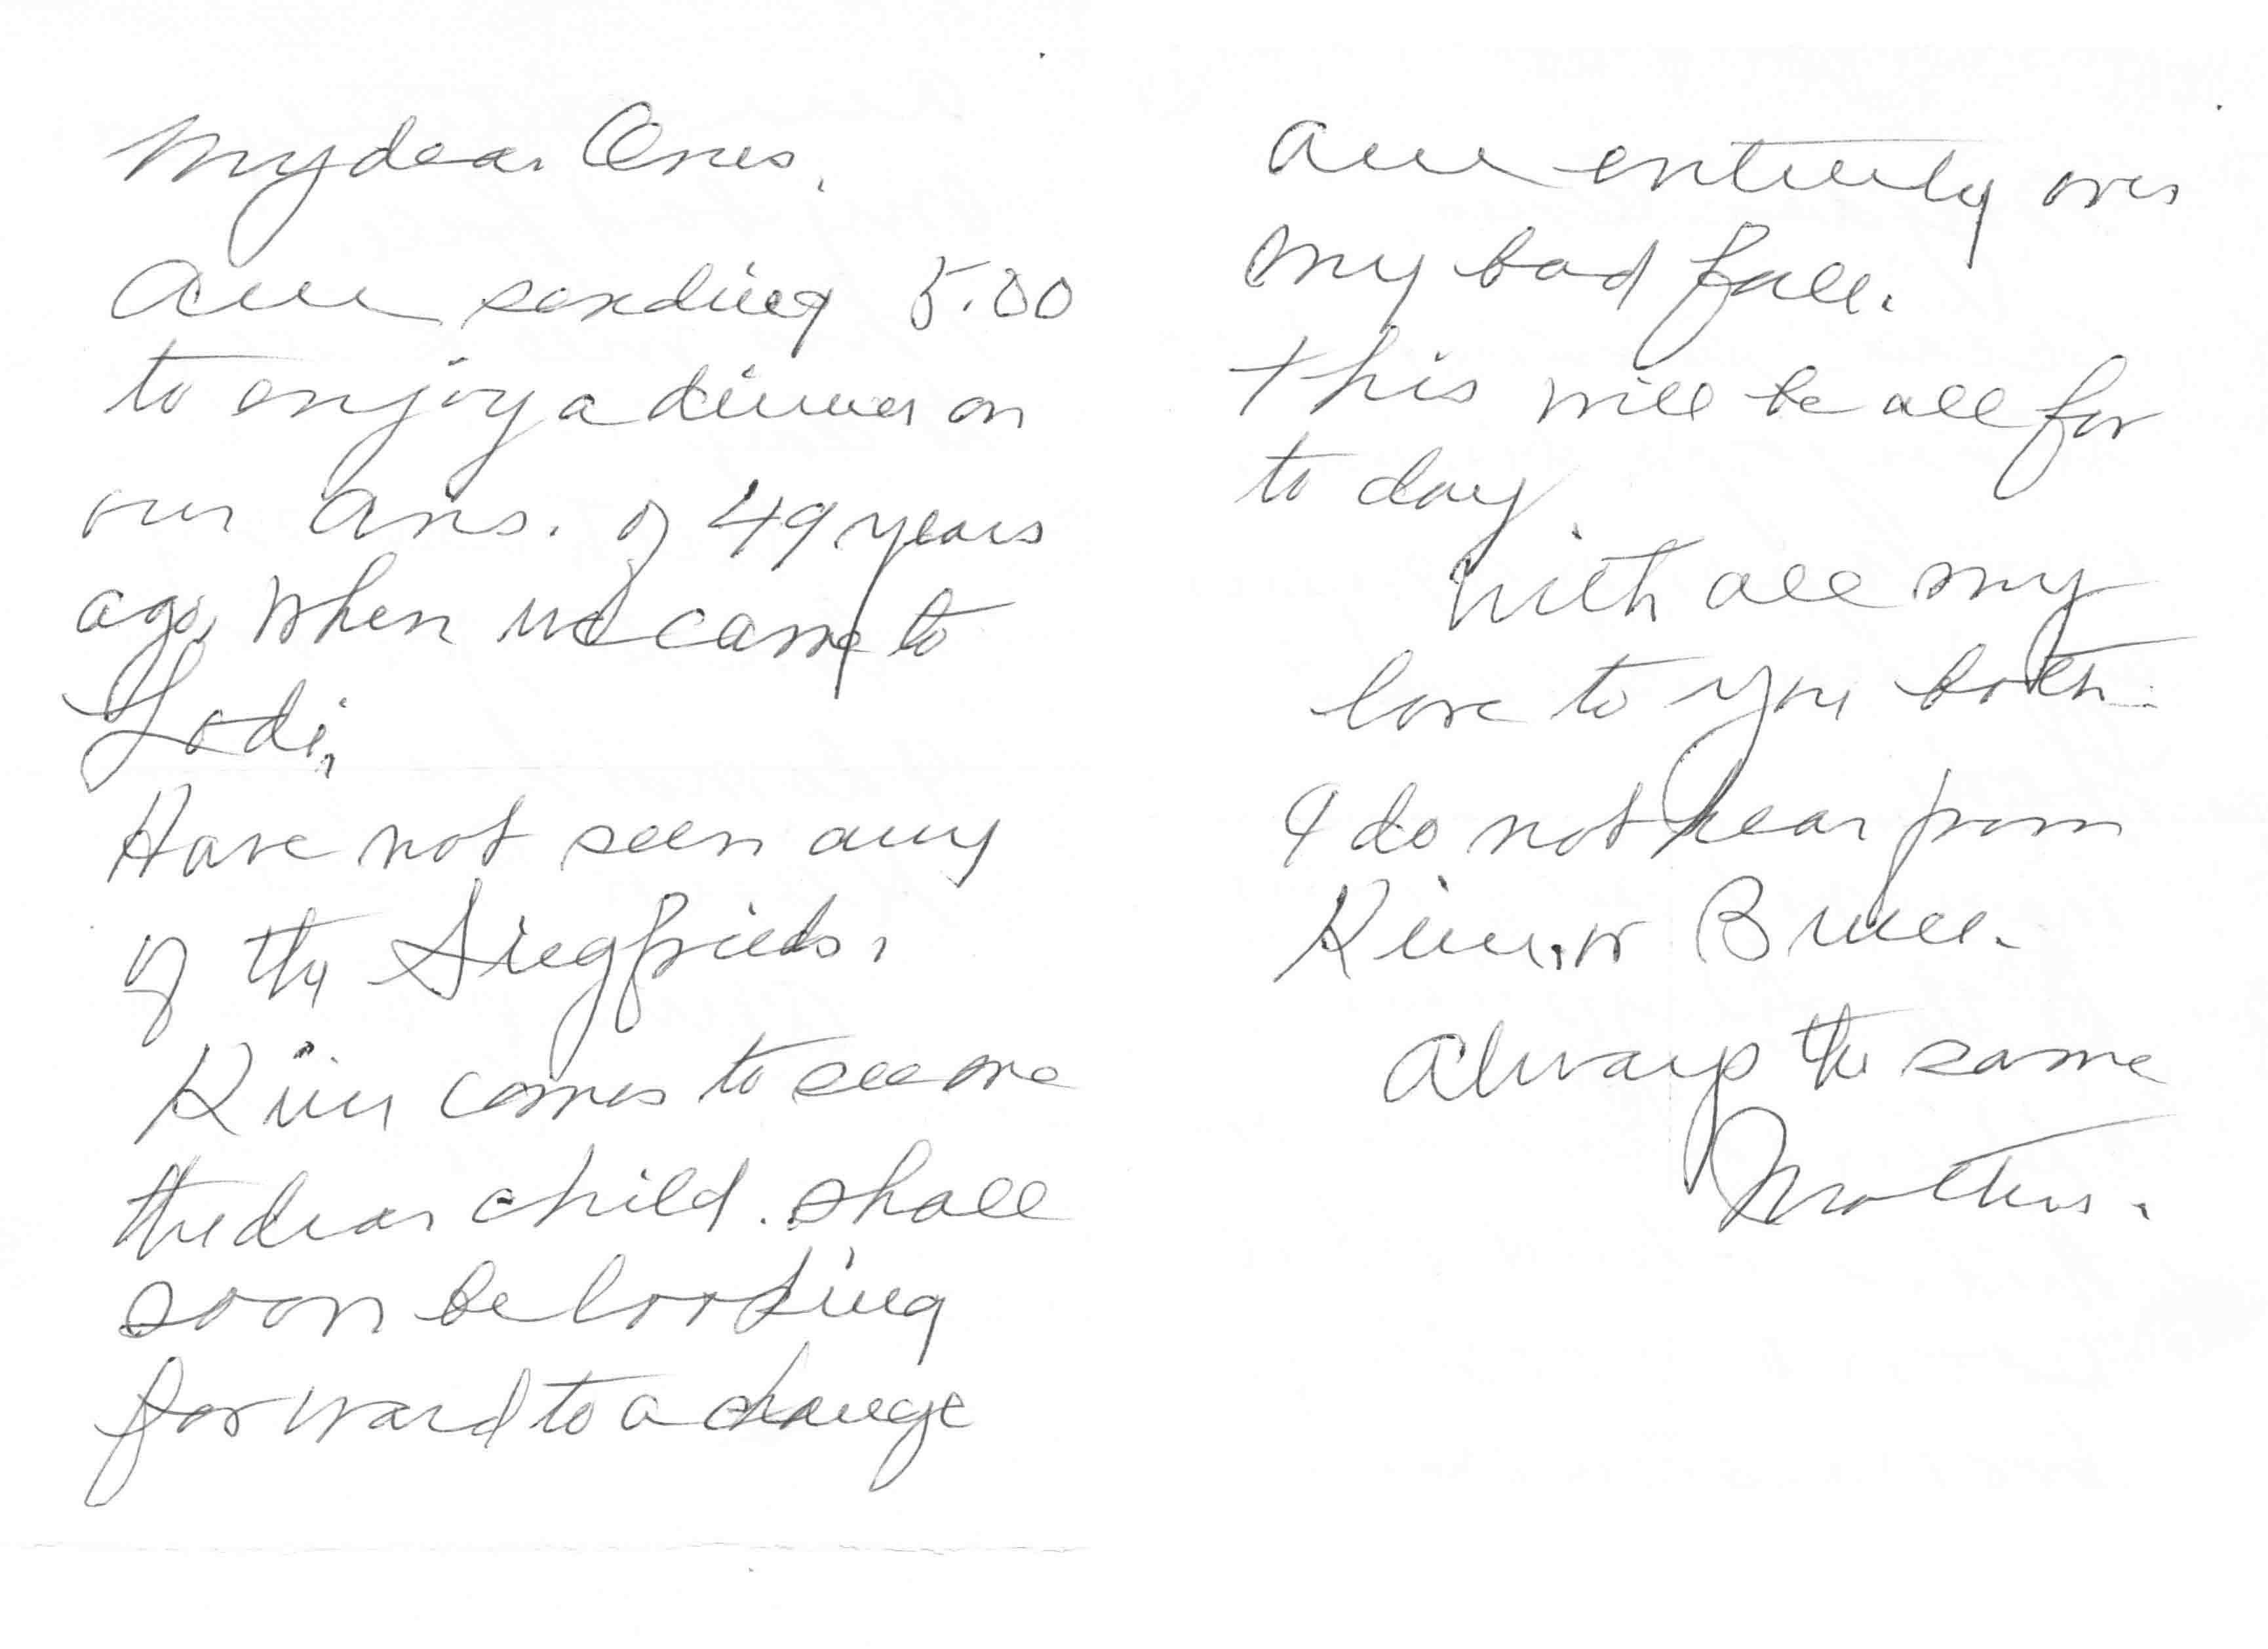 My dear Ones,
Am sending 5.00
to enjoy a dinner on
our Ans. of 49 years
ago, when we came to
Lodi,
Have not seen any
of the Siegfrieds.
Kim comes to see me
the dear child. shall
soon be looking
forward to a change
am entirely over
my bad fall.
this will be all for
to day
With all my
love to you both.
I do not hear from
Kim, or Bruce.
Always the same
Mother.